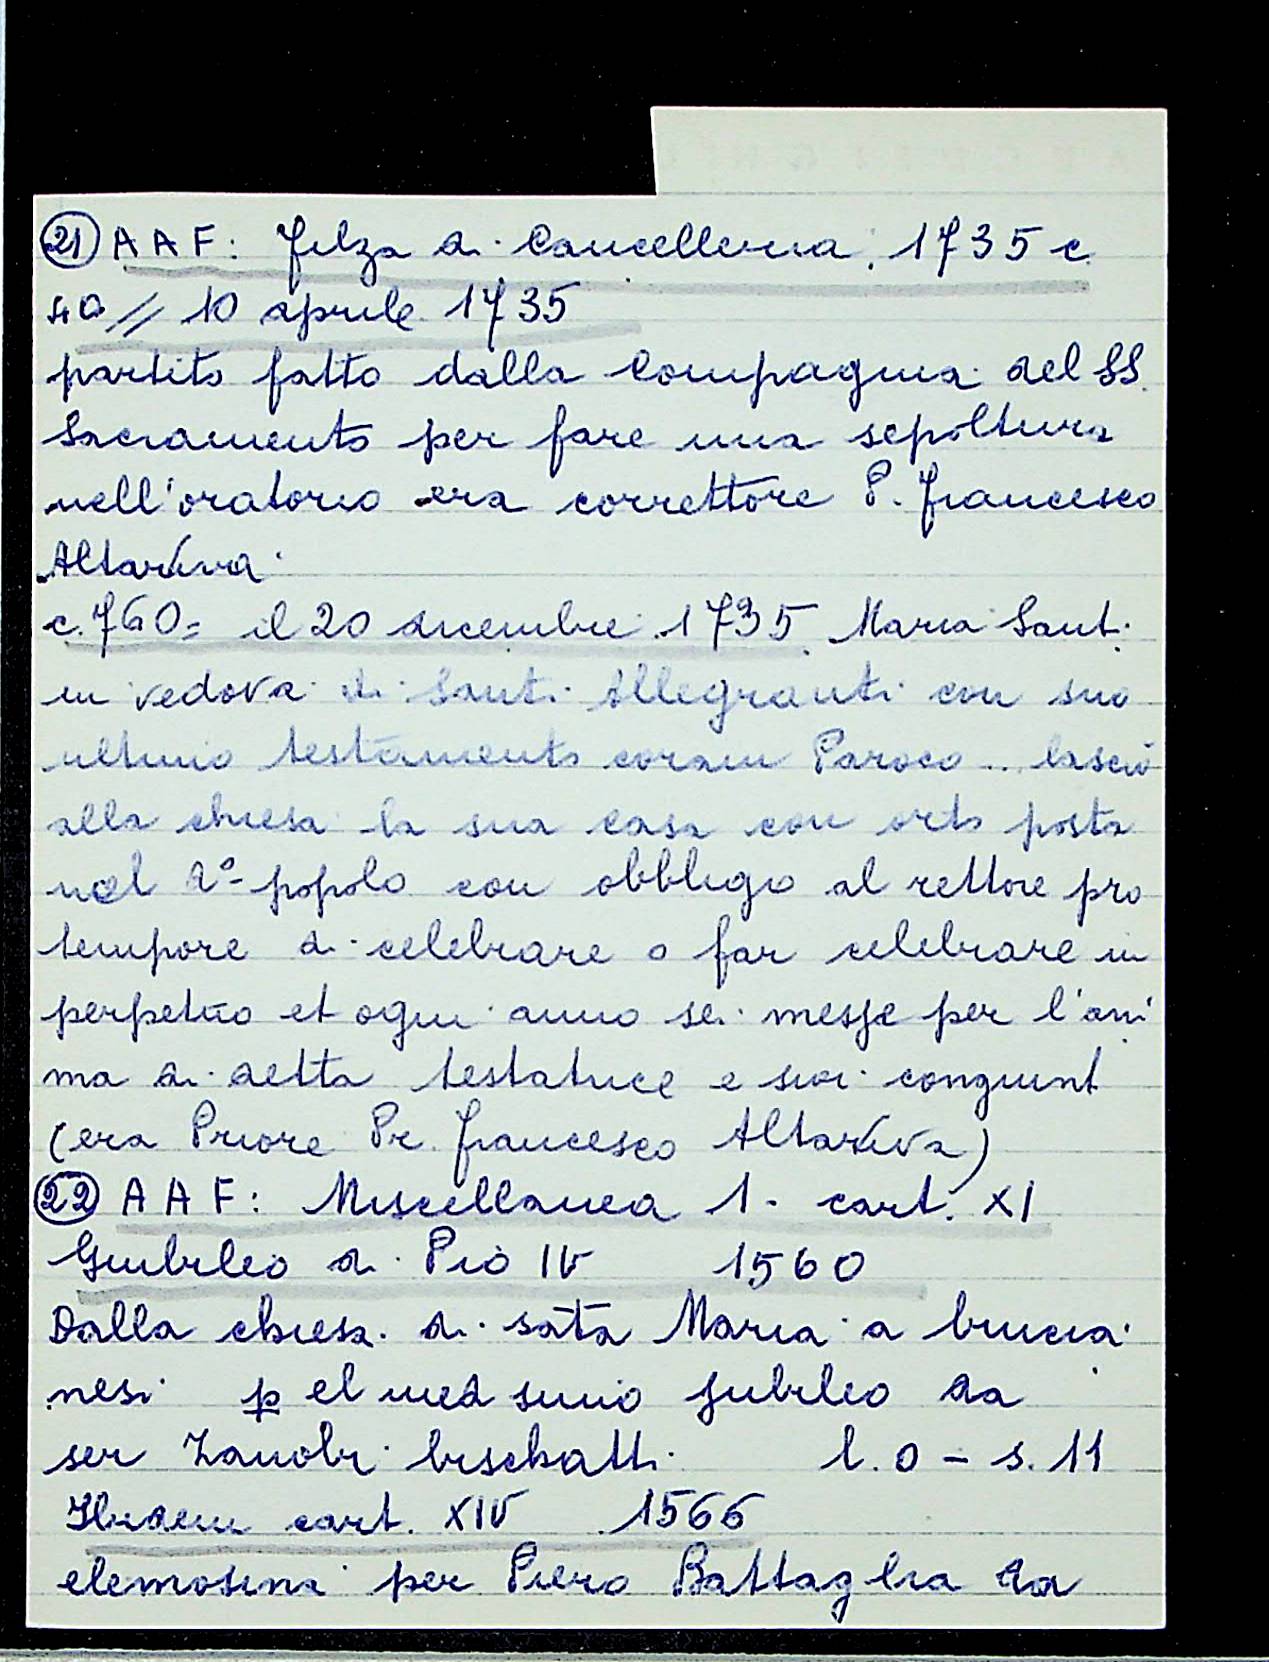 21 A A F: Filza di Cancelleria 1735 c
40 // 10 aprile 1735
partito fatto dalla Compagnia del SS.
Sacramento per fare una sepoltura
nell'oratorio era correttore P. Francesco
Altariva
c. 760= il 20 dicembre 1735 Maria Sant
in vedova di Santi Allegranti con suo
ultimo testamento coram Paroco .. lasciò
alla chiesa la sua casa con orto posta
nel 2° popolo con obbligo al rettore pro
tempore di celebrare o far celebrare in
perpetuo et ogni anno sei messe per l'ani
ma di detta testatrice e suoi congiunt
(era Priore Pr. Francesco Altariva)
22 A A F: Miscellanea 1. cart. XI
Giubileo di Pio IV 1560
Dalla chiesa di sāta Maria a brucia
nesi p el medsimo jubileo da
ser Zanobi bischatti l. 0 - s. 11
Ibidem cart. XIV 1566
elemosina per Piero Battaglia da